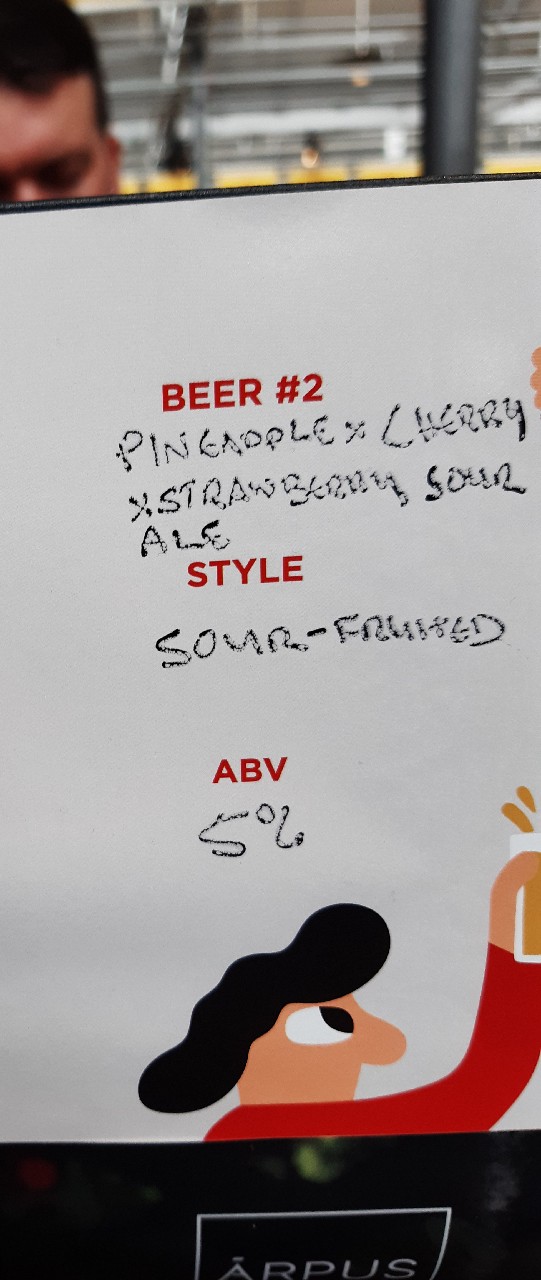 BEER #2
PINEAPPLE x CHERRY
x STRAWBERRY SOUR
ALE
STYLE
SOUR-FRUITED
ABV
5%
ĀRPUS